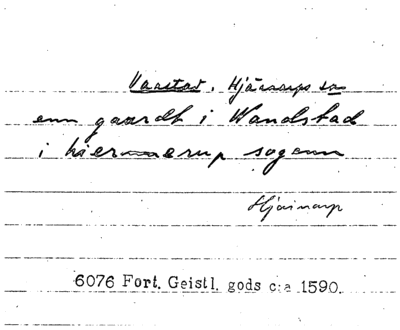 Vaastad. Hjärnarps sn
enn gaardt i Wandstad
i hiernnerup sogenn
Hjärnarp
6076 Fort. Geistl. gods c:a 1590.